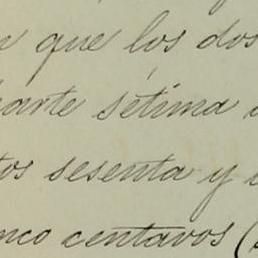 que los dos
parte sétima
tos sesenta y
inco centavos (